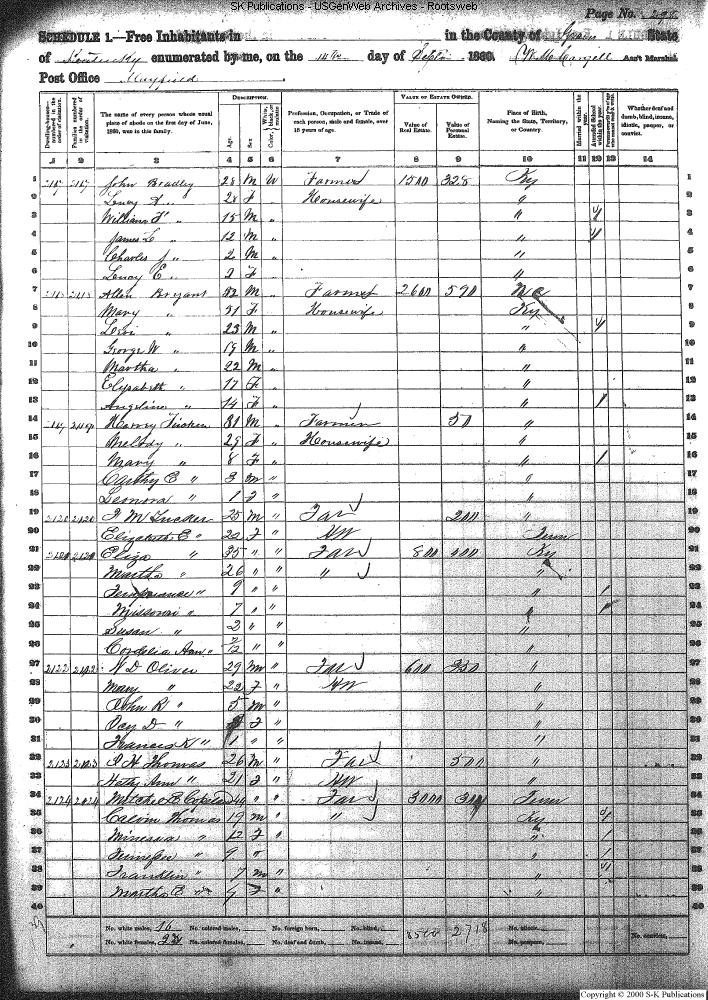 SK Publications - USGenWeb Archives - Rootsweb
Page No. 298
SCHEDULE 1.—Free Inhabitants in in the County of Graves State
of Kentucky enumerated by me, on the 14th day of Sept 1860. Ass't Marshal.
Post Office Mayfield
Dwelling-houses— numbered in the order of visitation. Families numbered in the order of visitation. The name of every person whose usual place of abode on the first day of June, 1860, was in this family. DESCRIPTION. Age. Sex. Color, White, black, or mulatto. Profession, Occupation, or Trade of each person, male and female, over 15 years of age. VALUE OF ESTATE OWNED. Value of Real Estate. Value of Personal Estate. Place of Birth, Naming the State, Territory, or Country. Married within the year. Attended School within the year. Whether deaf and dumb, blind, insane, idiotic, pauper, or convict.
1 2 3 4 5 6 7 8 9 10 11 12 13 14
1 2117 2117 John Bradley 28 M W Farmer 1500 328 Ky 1
2 Lucy A. " 28 F Housewife " 2
3 William F " 15 M " 3
4 James L " 12 M " 4
5 Charles J " 2 M " 5
6 Lucy E " 2 F " 6
7 2118 2118 Allen Bryant 52 M Farmer 2600 590 NC 7
8 Mary " 51 F Housewife Ky 8
9 Levi " 23 M " 9
10 George W " 19 M " 10
11 Martha " 22 M " 11
12 Elizabeth " 17 F " 12
13 Angeline " 14 F " 1 13
14 2119 2119 Harvey Tucker 31 M Farmer 50 " 14
15 Melody " 29 F Housewife " 15
16 Mary " 8 F " 1 16
17 Carthy E " 3 M " " 17
18 Leonora " 1 F " " 18
19 2120 2120 J M Tucker 25 M " Far 200 " 19
20 Elizabeth E " 22 F " HW Tenn 20
21 Eliza " 35 " " Far 800 400 Ky 21
22 Martha " 26 " " " " 22
23 Temperance " 9 " " " 1 23
24 Missouri " 7 " " " 1 24
25 Susan " 2 " " " 25
26 Cordelia Ann " 7/12 " " " 26
27 2122 2122 N D Oliver 29 M " Far 600 350 " 27
28 Mary " 22 F " HW " 28
29 John R " 5 M " " 29
30 D " F " " 30
31 Francis K " 1 " " " 31
32 2123 2123 J H Thomas 26 M " Far 500 " 32
33 Hetty Ann " 21 F " HW " 33
34 2124 2124 E Copeland 44 " " Far 3000 300 Tenn 34
35 Calvin Thomas 19 M " " Ky 35
36 Minerva " 12 F " " 1 36
37 Jennifer " 9 " " 1 37
38 Franklin " 7 M " " 38
39 Martha E " F " " 39
40 40
No. white males, 16 No. colored males, No. foreign born, No. blind, 8500 2718 No. idiotic, No. convicts,
No. white females, 23 No. colored females, No. deaf and dumb, No. insane, No. paupers,
Copyright © 2000 S-K Publications